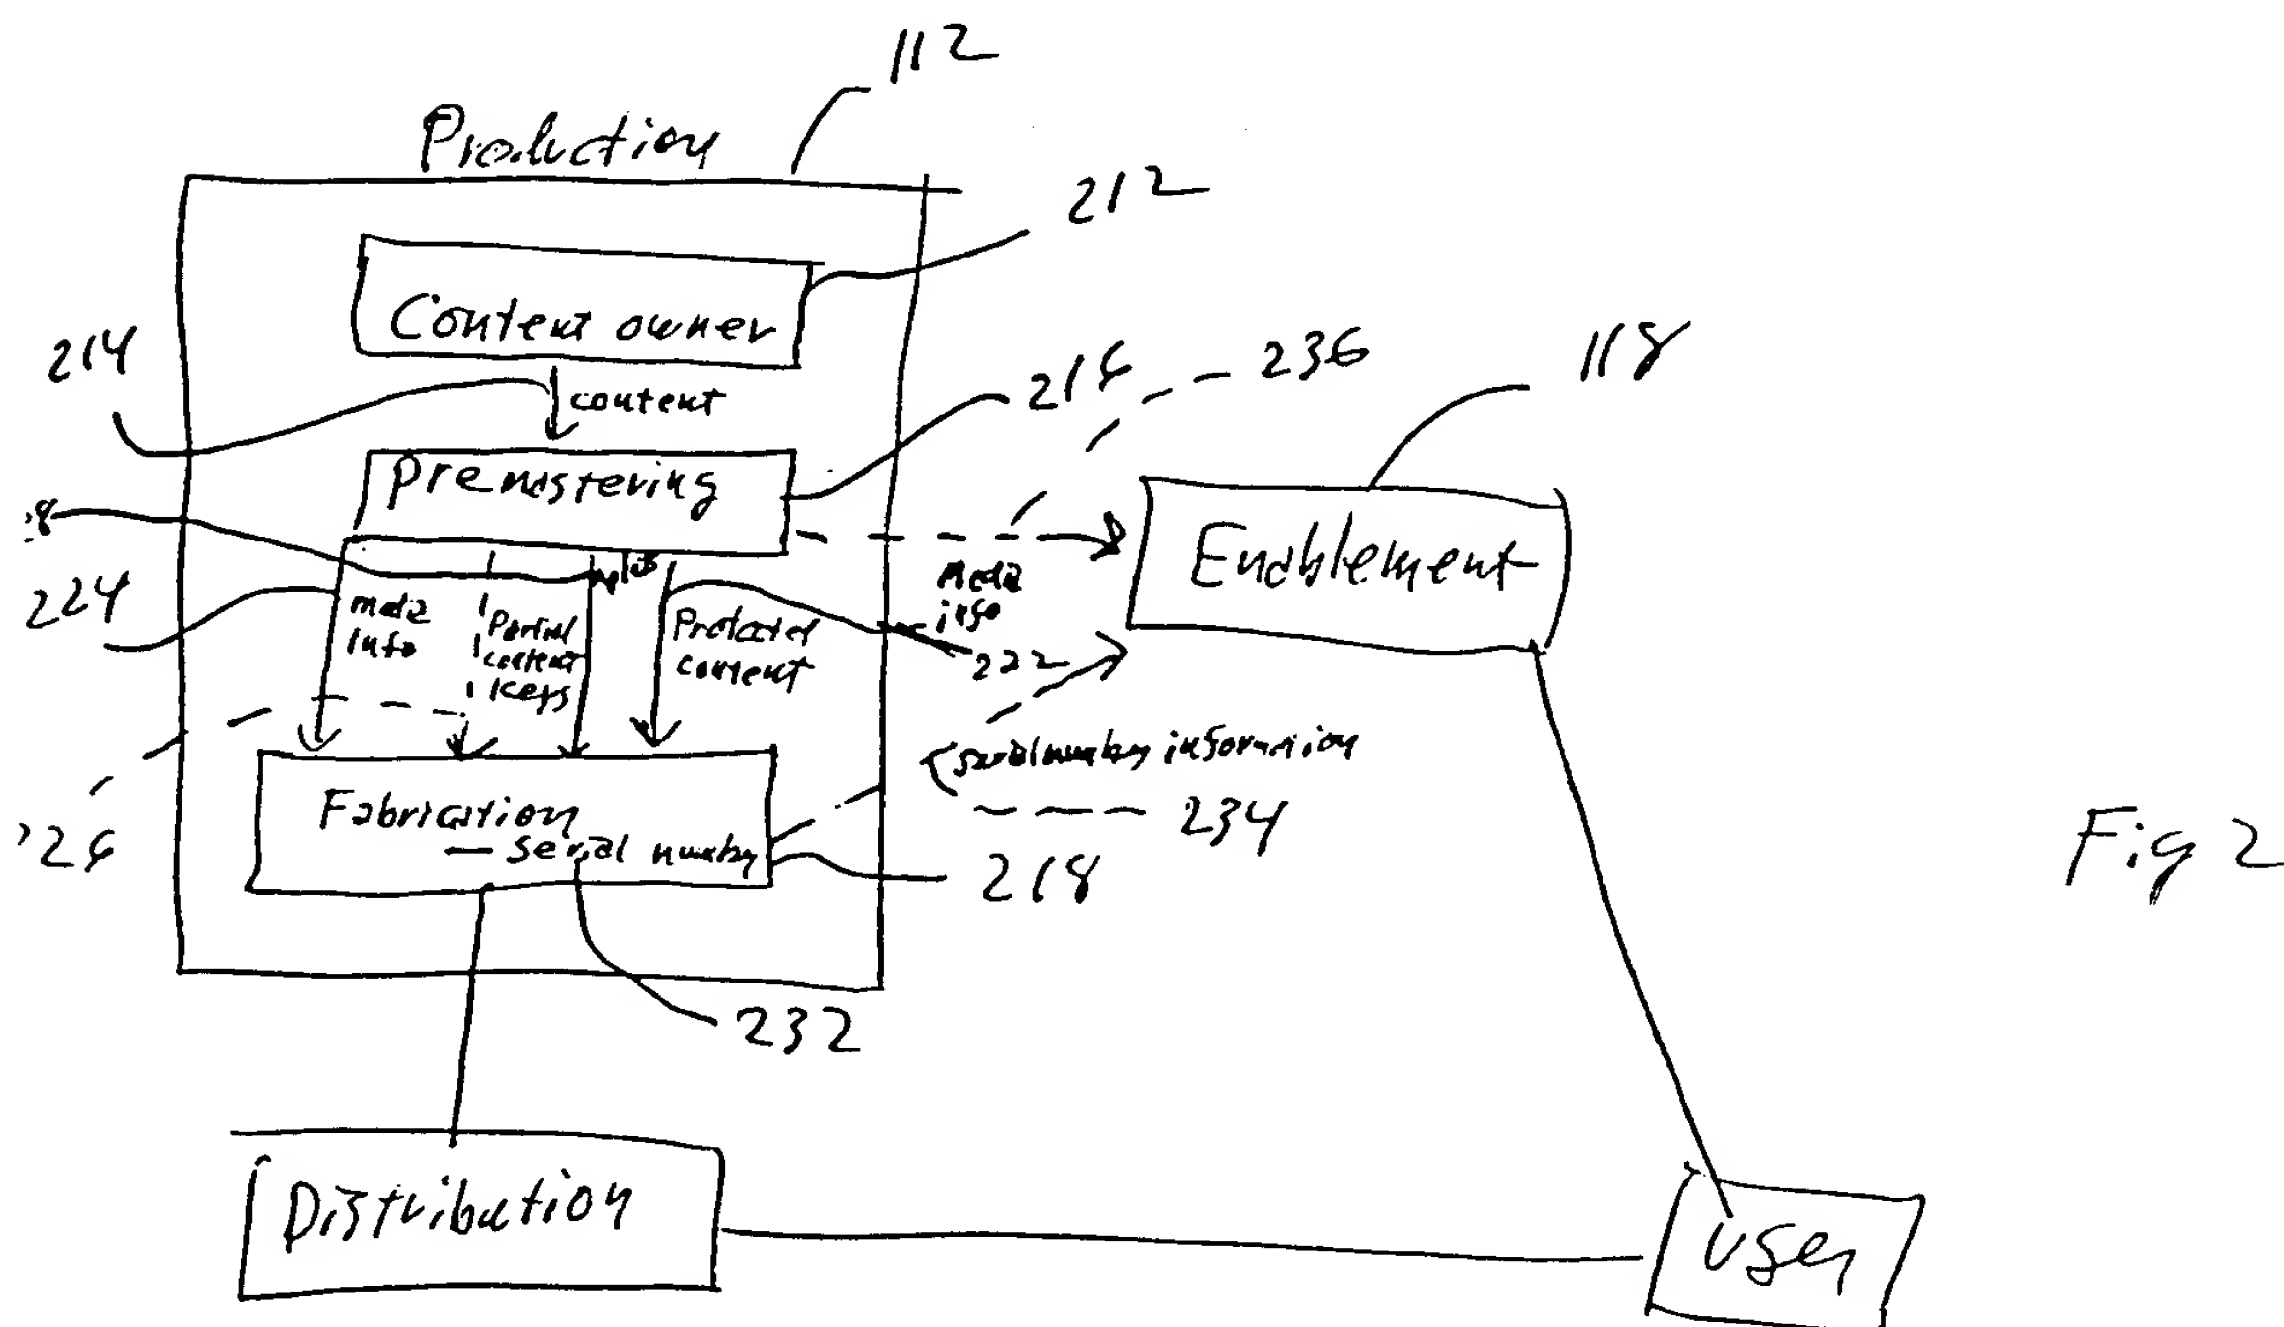 112
Production
212
Content owner
214
content
216
236
118
Premastering
Enablement
224
Media
info
media
info
Partial
content
keys
Protected
content
222
serial number information
234
Fabrication
— serial number
218
Fig 2
232
Distribution
User